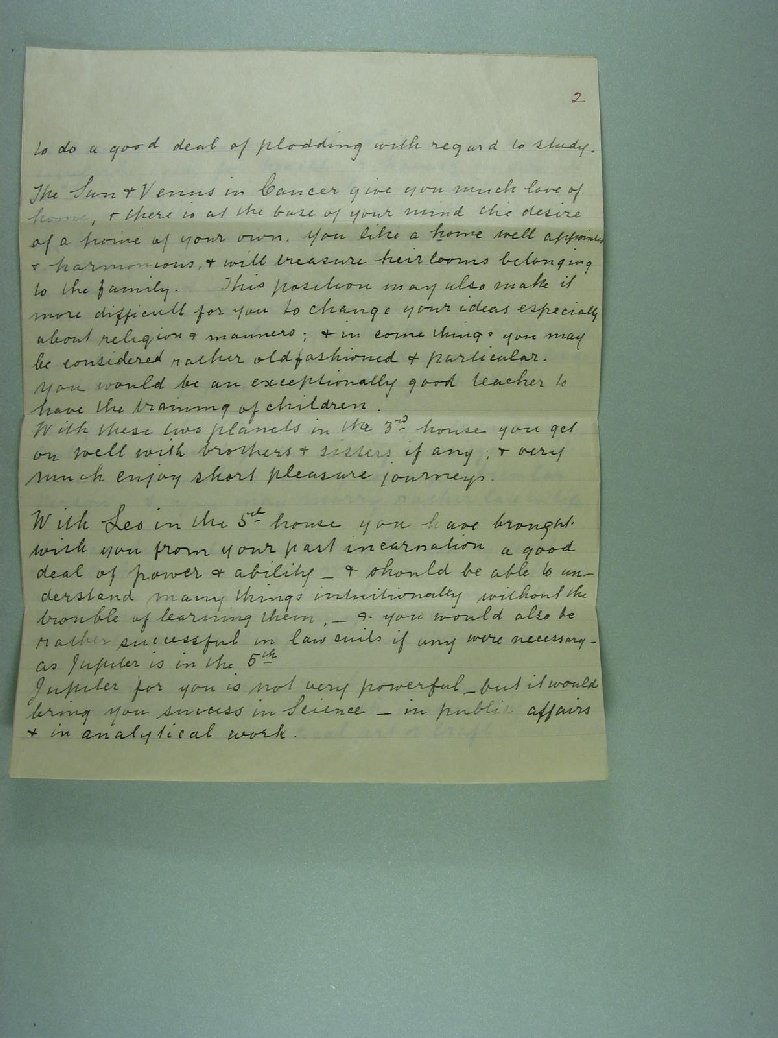 2
to do a good deal of plodding with regard to study.
The Sun & Venus in Cancer give you much love of
home, & there is at the base of your mind the desire
of a home of your own. You like a home well appointed
& harmonious, & will treasure heirlooms belonging
to the family. This position may also make it
more difficult for you to change your ideas especially
about religion & manners; & in some things you may
be considered rather oldfashioned & particular.
You would be an exceptionally good teacher to
have the training of children.
With these two planets in the 3rd house you get
on well with brothers & sisters if any, & very
much enjoy short pleasure journeys.
With Leo in the 5th house you have brought
with you from your past incarnation a good
deal of power & ability – & should be able to un-
derstand many things intuitionally without the
trouble of learning them, – & you would also be
rather successful in law suits if any were necessary –
as Jupiter is in the 5th
Jupiter for you is not very powerful – but it would
bring you success in Science – in public affairs
& in analytical work.